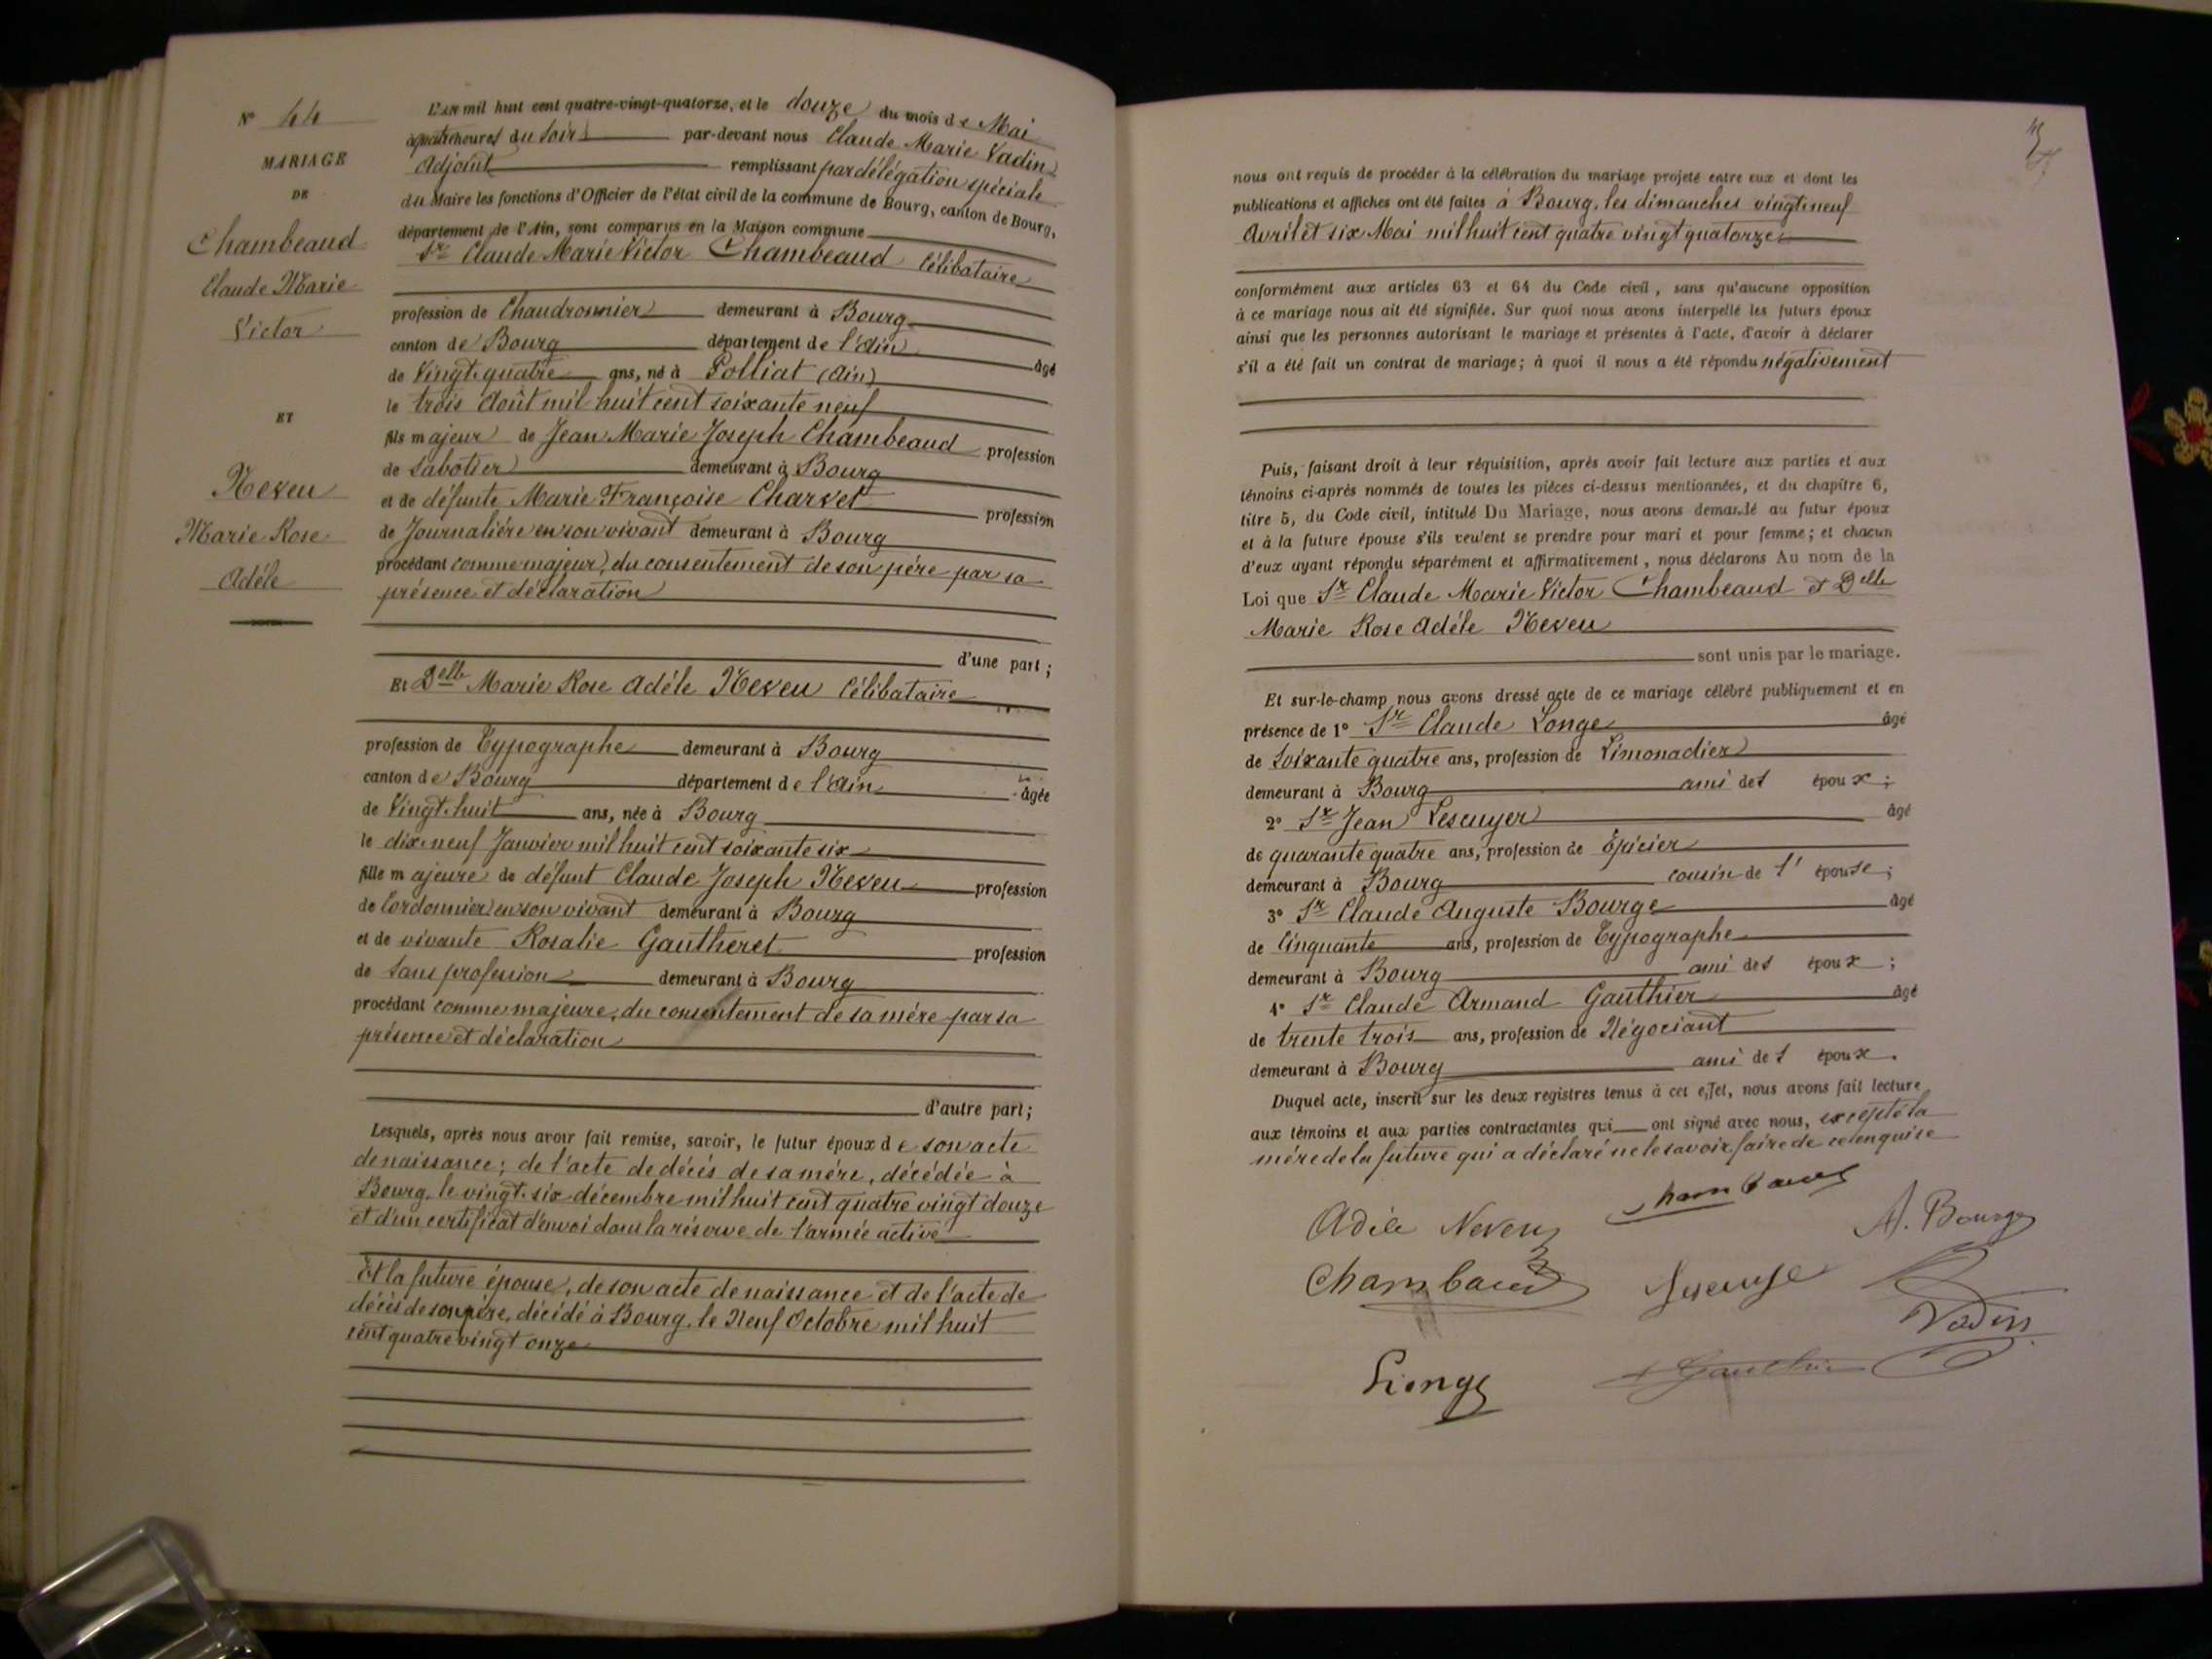 N° 44
MARIAGE
DE
Chambeaud
Claude Marie
Victor
ET
Neveu
Marie Rose
Adèle
L'an mil huit cent quatre-vingt-quatorze, et le douze du mois de Mai
à quatre heures du soir par-devant nous Claude Marie Vadin
Adjoint remplissant par délégation spéciale
du Maire les fonctions d'Officier de l'état civil de la commune de Bourg, canton de Bourg,
département de l'Ain, sont comparus en la Maison commune
Sr Claude Marie Victor Chambeaud Célibataire
profession de Chaudronnier demeurant à Bourg
canton de Bourg département de l'Ain âgé
de Vingt quatre ans, né à Polliat (Ain)
le trois Août mil huit cent soixante neuf
fils majeur de Jean Marie Joseph Chambeaud profession
de Sabotier demeurant à Bourg
et de défunte Marie Françoise Charvet profession
de Journalière en son vivant demeurant à Bourg
procédant comme majeur, du consentement de son père par sa
présence et déclaration
d'une part;
Et Delle Marie Rose Adèle Neveu Célibataire
profession de Typographe demeurant à Bourg
canton de Bourg département de l'Ain âgée
de Vingt-huit ans, née à Bourg
le dix-neuf Janvier mil huit cent soixante six
fille majeure de défunt Claude Joseph Neveu profession
de Cordonnier en son vivant demeurant à Bourg
et de vivante Rosalie Gautheret profession
de Sans profession demeurant à Bourg
procédant comme majeure, du consentement de sa mère par sa
présence et déclaration
d'autre part;
Lesquels, après nous avoir fait remise, savoir, le futur époux de son acte
de naissance; de l'acte de décès de sa mère, décédée à
Bourg, le vingt-six décembre mil huit cent quatre vingt douze
et d'un certificat d'envoi dans la réserve de l'armée active
Et la future épouse, de son acte de naissance et de l'acte de
décès de son père, décédé à Bourg, le Neuf Octobre mil huit
cent quatre vingt onze
nous ont requis de procéder à la célébration du mariage projeté entre eux et dont les
publications et affiches ont été faites à Bourg, les dimanches vingt-neuf
Avril et six Mai mil huit cent quatre vingt quatorze
conformément aux articles 63 et 64 du Code civil, sans qu'aucune opposition
à ce mariage nous ait été signifiée. Sur quoi nous avons interpellé les futurs époux
ainsi que les personnes autorisant le mariage et présentes à l'acte, d'avoir à déclarer
s'il a été fait un contrat de mariage; à quoi il nous a été répondu négativement
Puis, faisant droit à leur réquisition, après avoir fait lecture aux parties et aux
témoins ci-après nommés de toutes les pièces ci-dessus mentionnées, et du chapitre 6,
titre 5, du Code civil, intitulé Du Mariage, nous avons demandé au futur époux
et à la future épouse s'ils veulent se prendre pour mari et pour femme; et chacun
d'eux ayant répondu séparément et affirmativement, nous déclarons Au nom de la
Loi que Sr Claude Marie Victor Chambeaud & Delle
Marie Rose Adèle Neveu
sont unis par le mariage.
Et sur-le-champ nous avons dressé acte de ce mariage célébré publiquement et en
présence de 1° Sr Claude Longe âgé
de Soixante quatre ans, profession de Limonadier
demeurant à Bourg ami des époux;
2° Sr Jean Lescuyer âgé
de quarante quatre ans, profession de Épicier
demeurant à Bourg cousin de l'épouse;
3° Sr Claude Auguste Bourge âgé
de Cinquante ans, profession de Typographe
demeurant à Bourg ami des époux;
4° Sr Claude Armand Gauthier âgé
de trente trois ans, profession de Négociant
demeurant à Bourg ami des époux.
Duquel acte, inscrit sur les deux registres tenus à cet effet, nous avons fait lecture
aux témoins et aux parties contractantes qui ont signé avec nous, excepté la
mère de la future qui a déclaré ne le savoir faire de ce enquise
Adèle Neveu
A. Bourge
Chambaud
Vadin
Longe
Gauthier